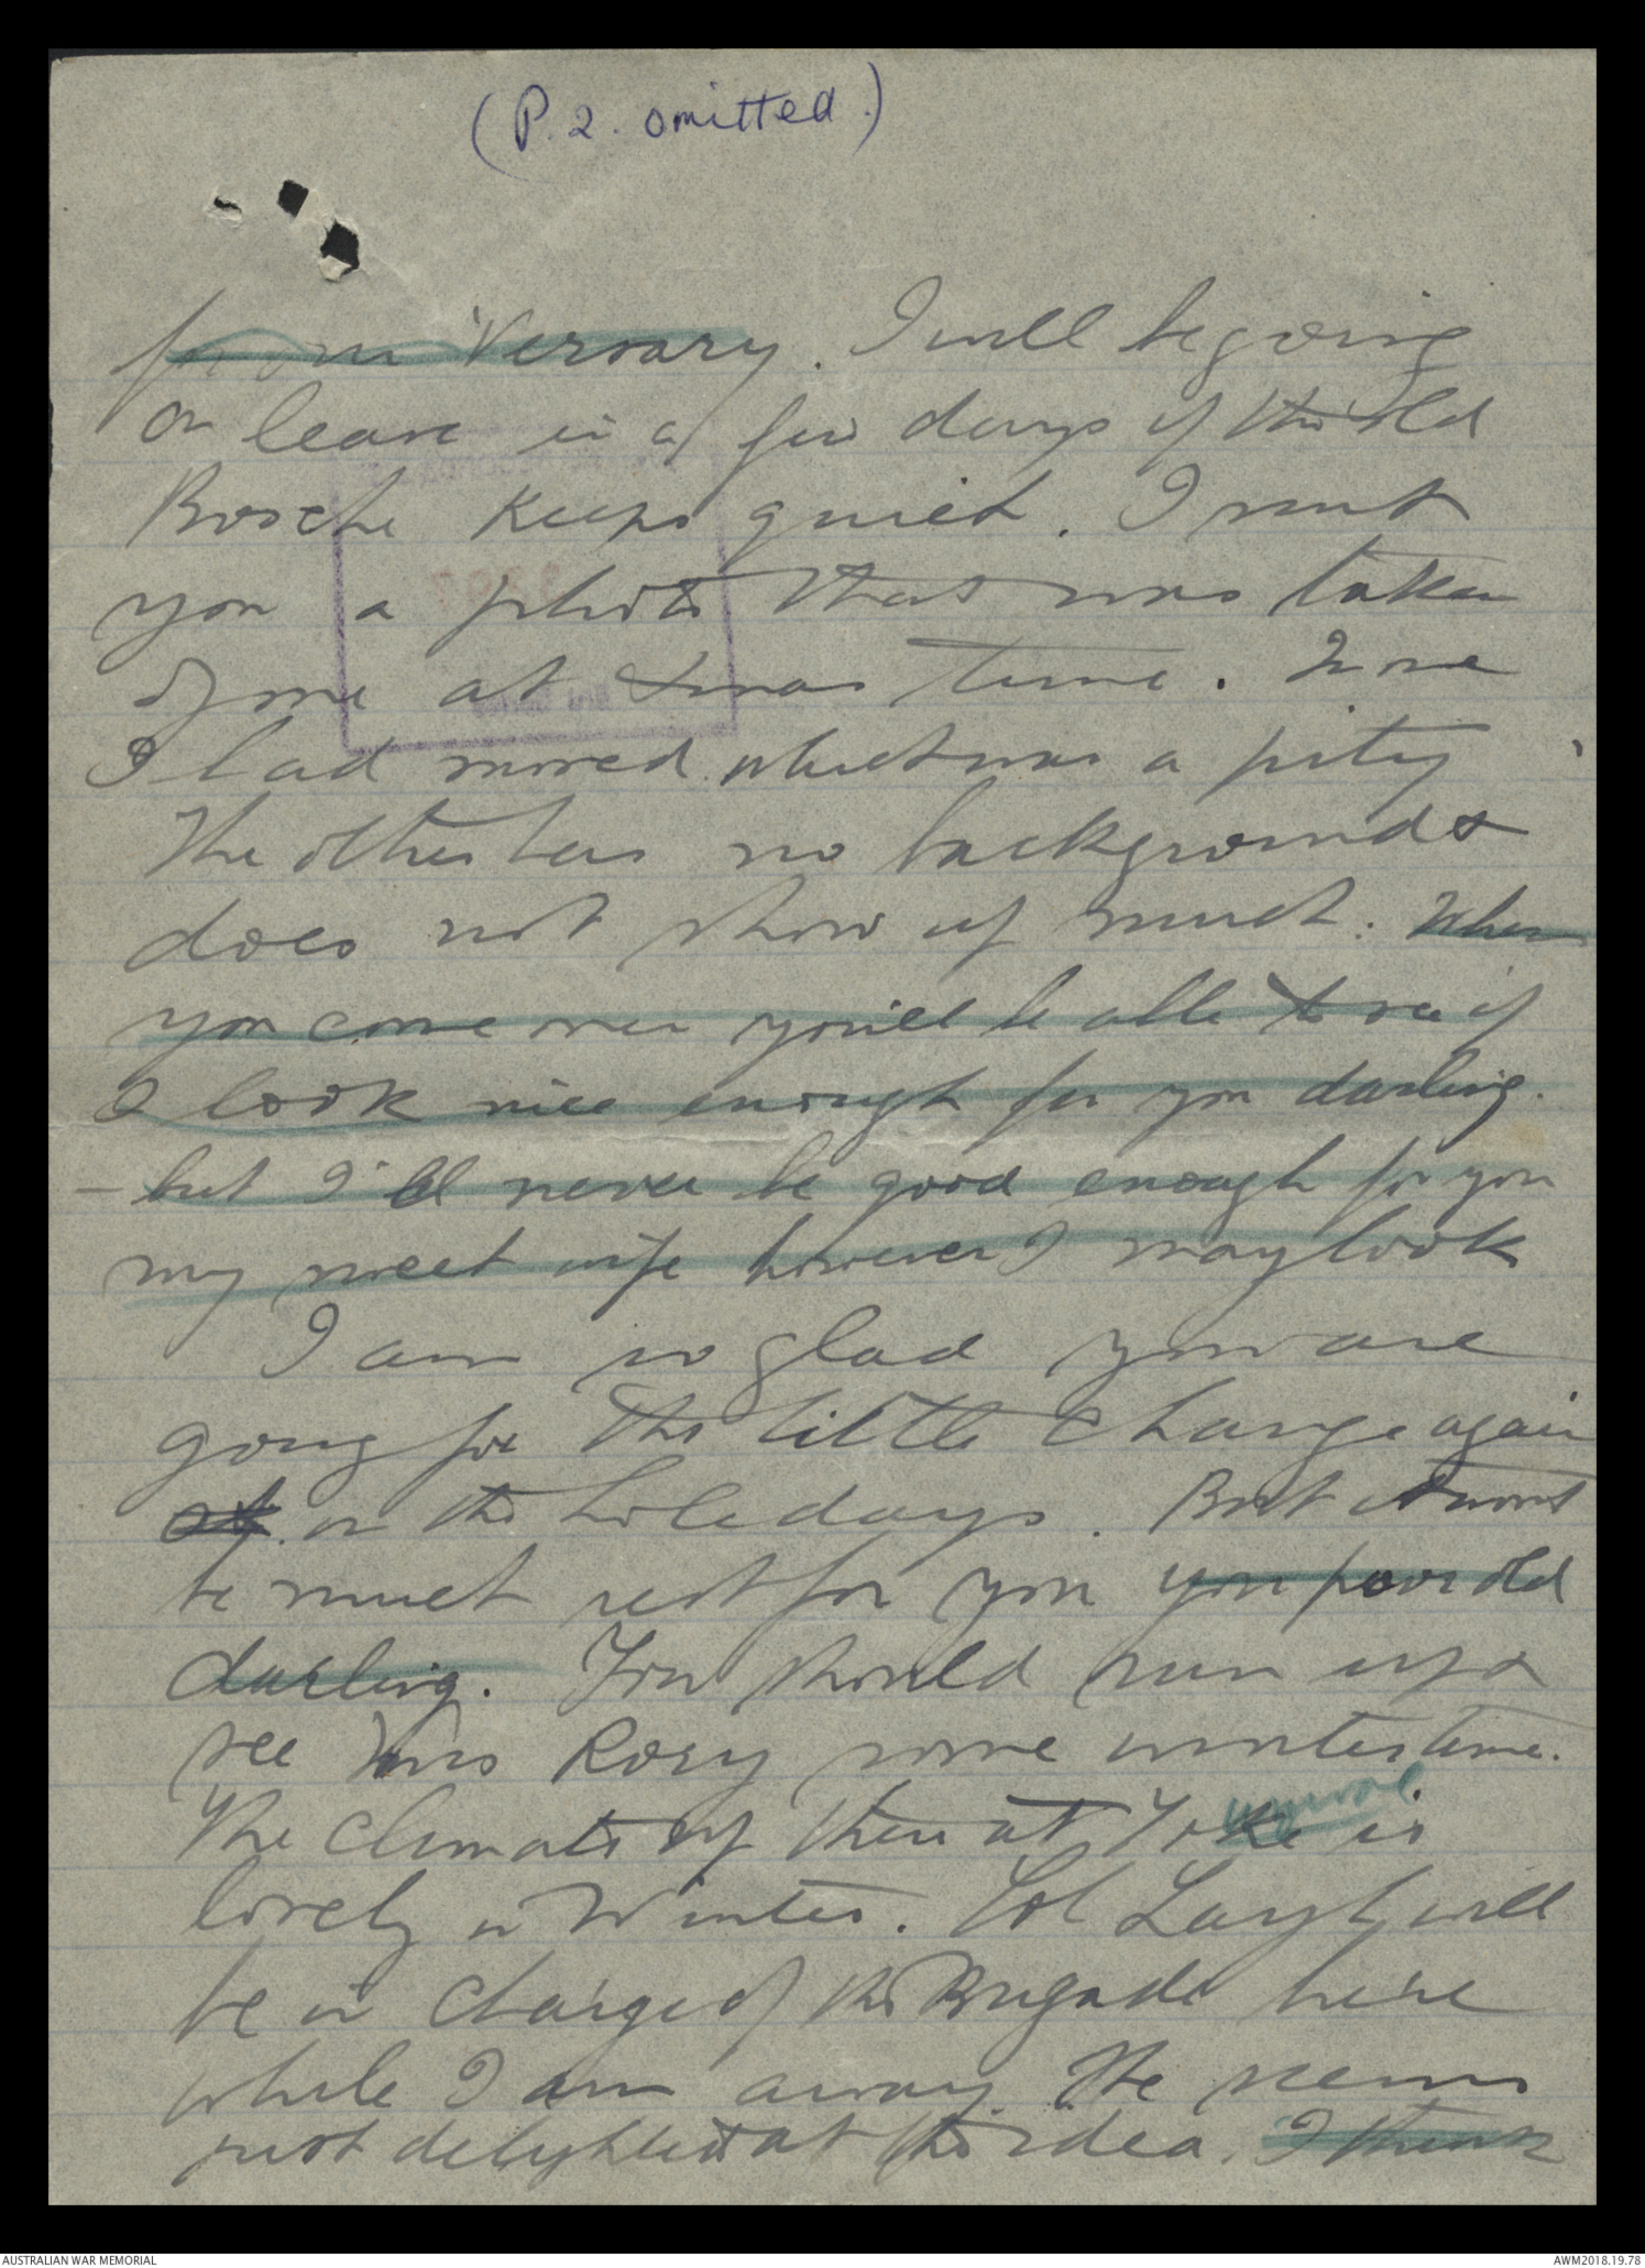 (P. 2. omitted.)
from 'Versary. I will be going
on leave in a few days if the old
Bosche keeps quiet. I sent
you a photo that was taken
of me at Xmas time. In one
I had moved which was a pity
The other has no background &
does not show up much. When
you come over you'll be able to see if
I look nice enough for you darling.
- but I'll never be good enough for you
my sweet wife however I may look
I am so glad you are
going for the little change again
in the holidays. But it wont
be much rest for you you poor old
darling. You should run up &
see Mrs Rosy some winter time.
The climate up there at Yoke is
lovely in Winter. Col Layh will
be in charge of the Brigade here
while I am away. He seems
just delighted at the idea. I think
AUSTRALIAN WAR MEMORIAL
AWM2018.19.78